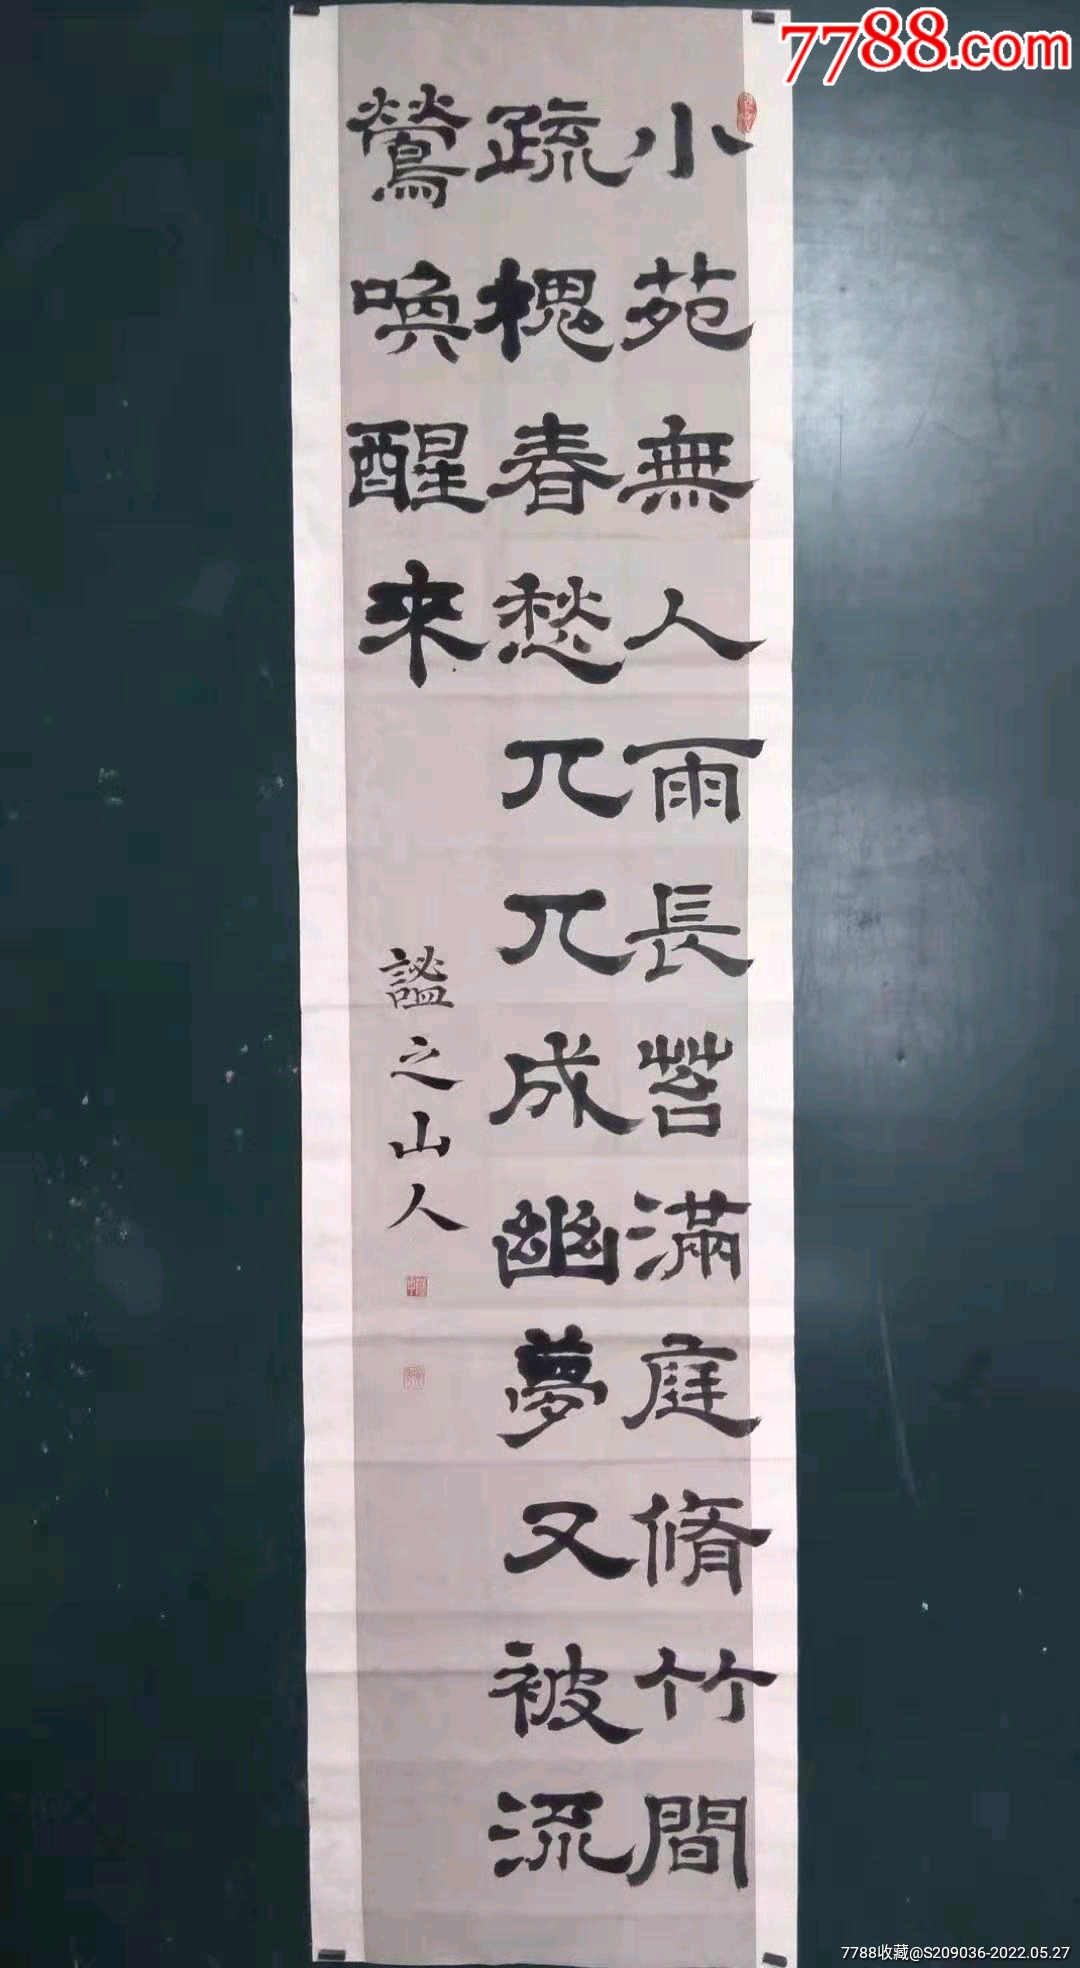 7788.com
小苑無人雨長苔滿庭脩竹間
疏槐春愁兀兀成幽夢又被流
鶯喚醒來
謐之山人
7788收藏@S209036-2022.05.27